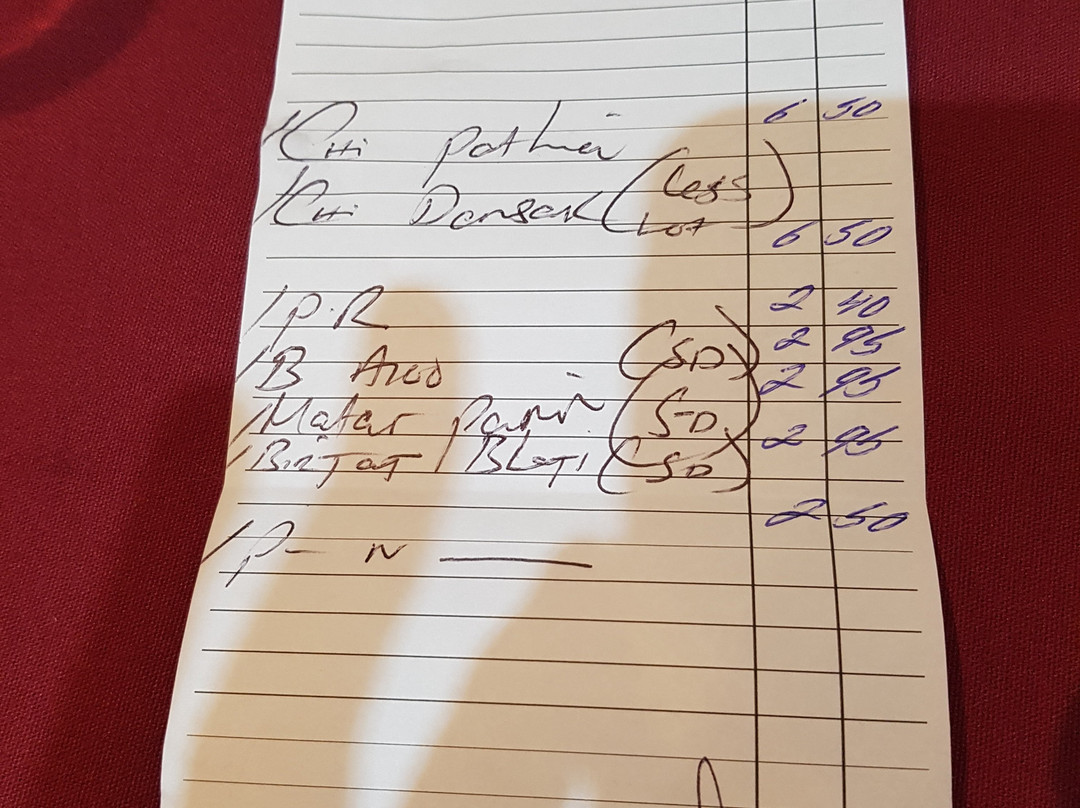 1 CHI Pathia 6 50
1 CHI Dansak (Less Hot) 6 50
1 P.R 2 40
1 B Aloo (SD) 2 95
1 Matar Panir (SD) 2 95
1 (SD) 2 95
1 P- N 2 50